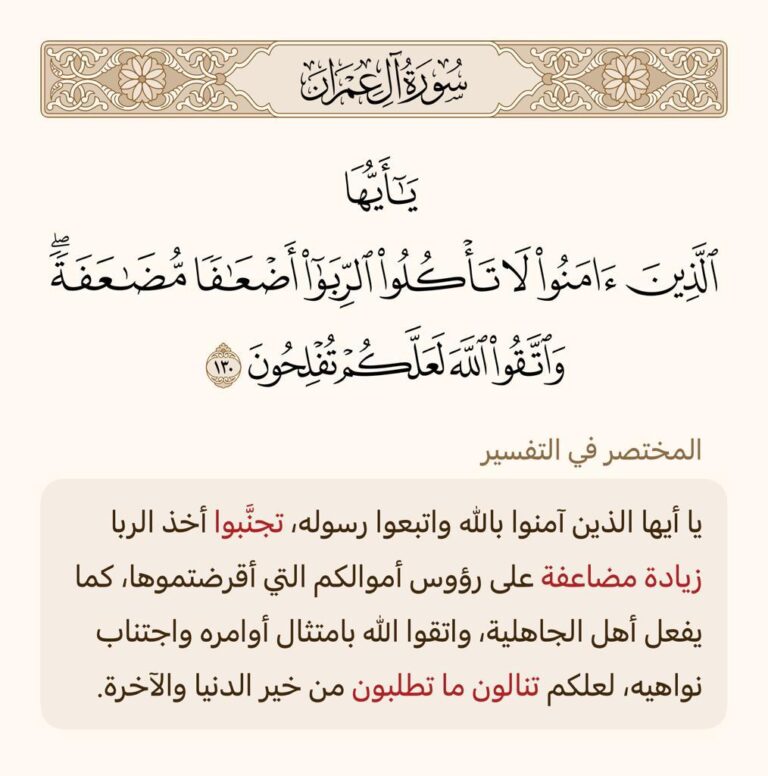 سُورَةُ آلِ عِمْرَانَ
يَٰٓأَيُّهَا
ٱلَّذِينَ ءَامَنُوا۟ لَا تَأْكُلُوا۟ ٱلرِّبَوٰٓا۟ أَضْعَٰفًا مُّضَٰعَفَةً ۖ
وَٱتَّقُوا۟ ٱللَّهَ لَعَلَّكُمْ تُفْلِحُونَ ١٣٠
المختصر في التفسير
يا أيها الذين آمنوا بالله واتبعوا رسوله، تجنَّبوا أخذ الربا
زيادة مضاعفة على رؤوس أموالكم التي أقرضتموها، كما
يفعل أهل الجاهلية، واتقوا الله بامتثال أوامره واجتناب
نواهيه، لعلكم تنالون ما تطلبون من خير الدنيا والآخرة.